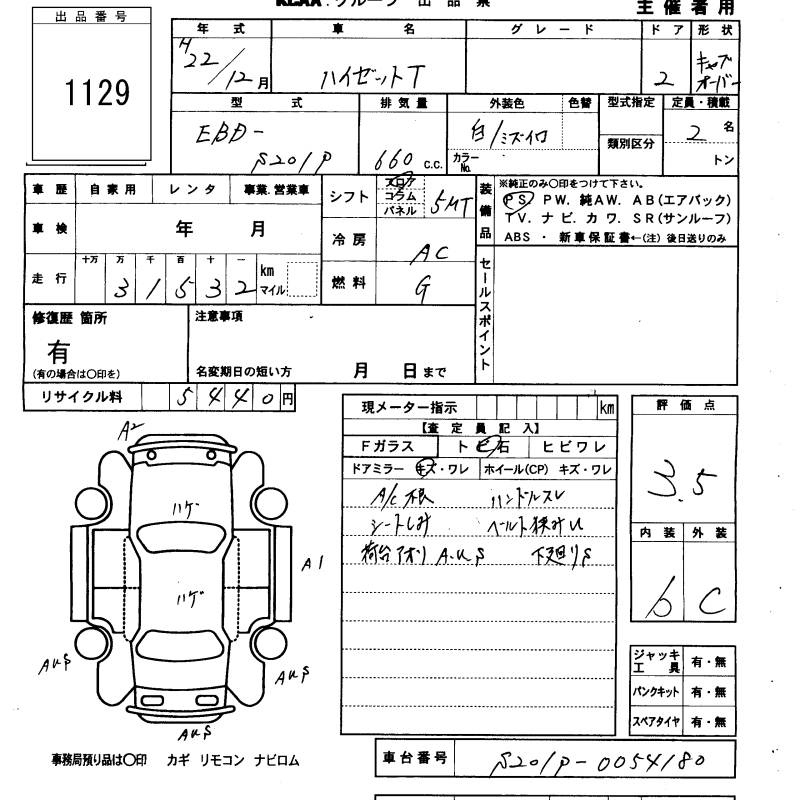 KCAA.グループ 出品票
主催者用
出品番号
1129
年式 車名 グレード ドア 形状
H22/12月 ハイゼットT 2 キャブオーバー
型式 排気量 外装色 色替 型式指定 定員・積載
EBD-
S201P 660 c.c. 白/ミズイロ 2 名
カラーNo. 類別区分 トン
車歴 自家用 レンタ 事業.営業車
車検 年 月
走行 十万 万 千 百 十 一
3 1 5 3 2 km マイル
シフト フロア コラム パネル 5MT
冷房 AC
燃料 G
装備品
※純正のみ○印をつけて下さい。
PS PW. 純AW. AB(エアバック)
TV. ナビ. カワ. SR(サンルーフ)
ABS ・ 新車保証書←(注) 後日送りのみ
セールスポイント
修復歴 箇所
有
(有の場合は○印を)
注意事項
名変期日の短い方 月 日まで
リサイクル料 5 4 4 0 円
現メーター指示 km
【査定員記入】
Fガラス トビ石 ヒビワレ
ドアミラー キズ・ワレ ホイール(CP) キズ・ワレ
A/C 不良 ハンドルスレ
シートしみ ベルト挟み
荷台アオリ A.U.S 下廻りS
評価点
3.5
内装 外装
b C
ジャッキ工具 有・無
パンクキット 有・無
スペアタイヤ 有・無
A2
ハゲ
A1
ハゲ
AUS
AUS
AUS
事務局預り品は○印 カギ リモコン ナビロム
車台番号 S201P-0054180